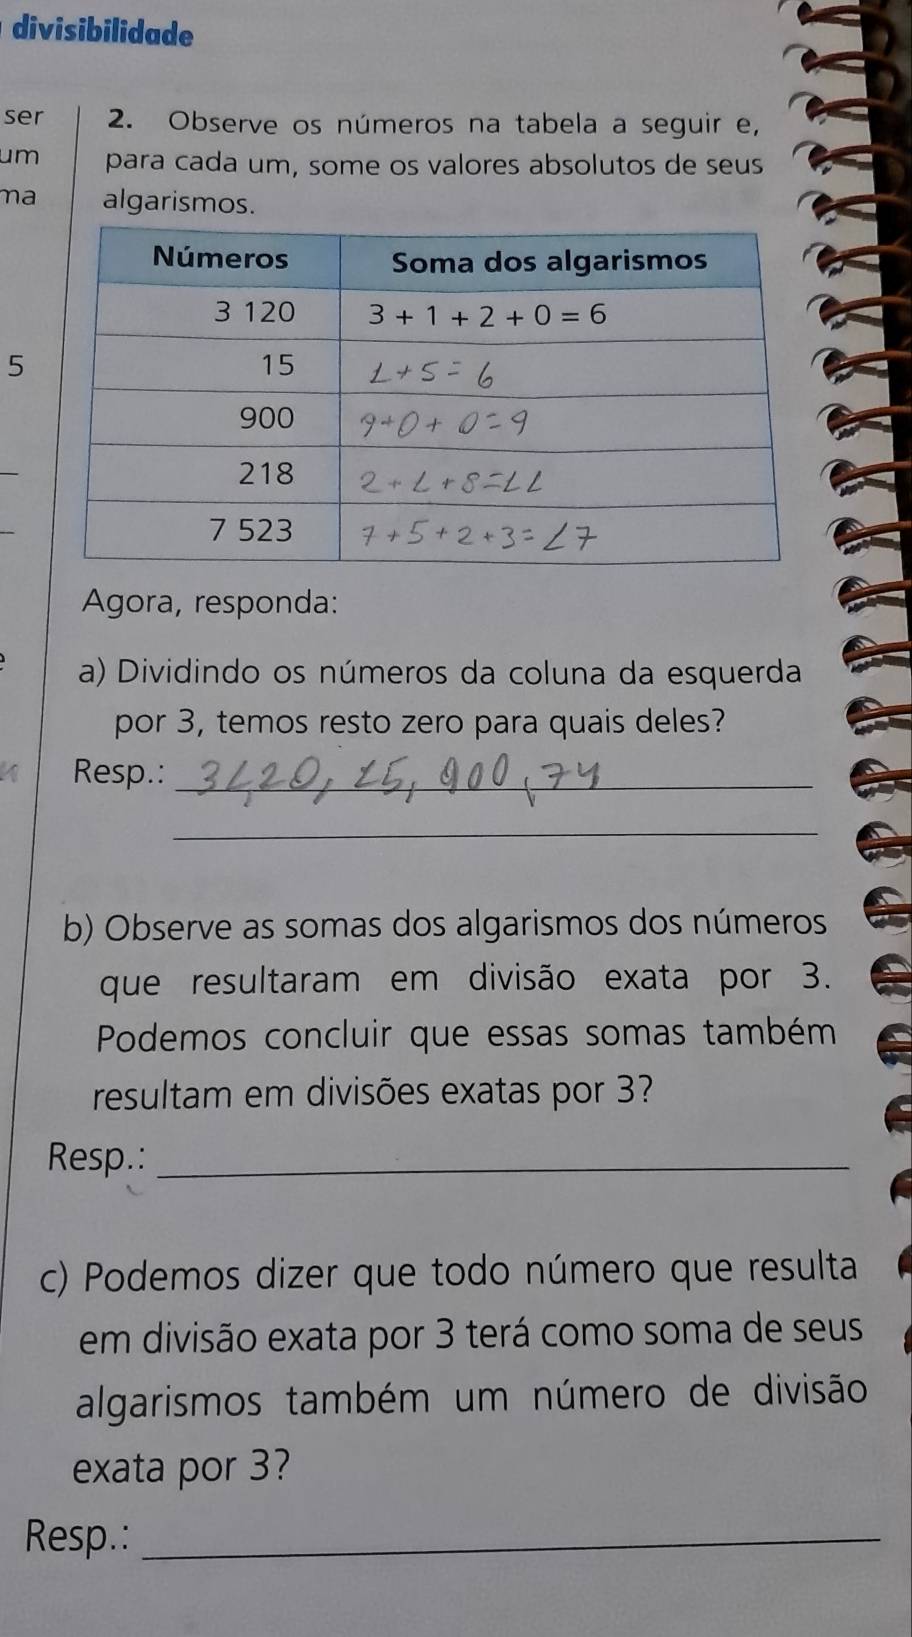 divisibilidade
ser
um
ma
5
2. Observe os números na tabela a seguir e,
para cada um, some os valores absolutos de seus
algarismos.
Números Soma dos algarismos
3 120 3 + 1 + 2 + 0 = 6
15 1+5=6
900 9+0+0=9
218 2+1+8=11
7 523 7+5+2+3=17
Agora, responda:
a) Dividindo os números da coluna da esquerda
por 3, temos resto zero para quais deles?
Resp.: 3120, 15, 900, 74
b) Observe as somas dos algarismos dos números
que resultaram em divisão exata por 3.
Podemos concluir que essas somas também
resultam em divisões exatas por 3?
Resp.:
c) Podemos dizer que todo número que resulta
em divisão exata por 3 terá como soma de seus
algarismos também um número de divisão
exata por 3?
Resp.: